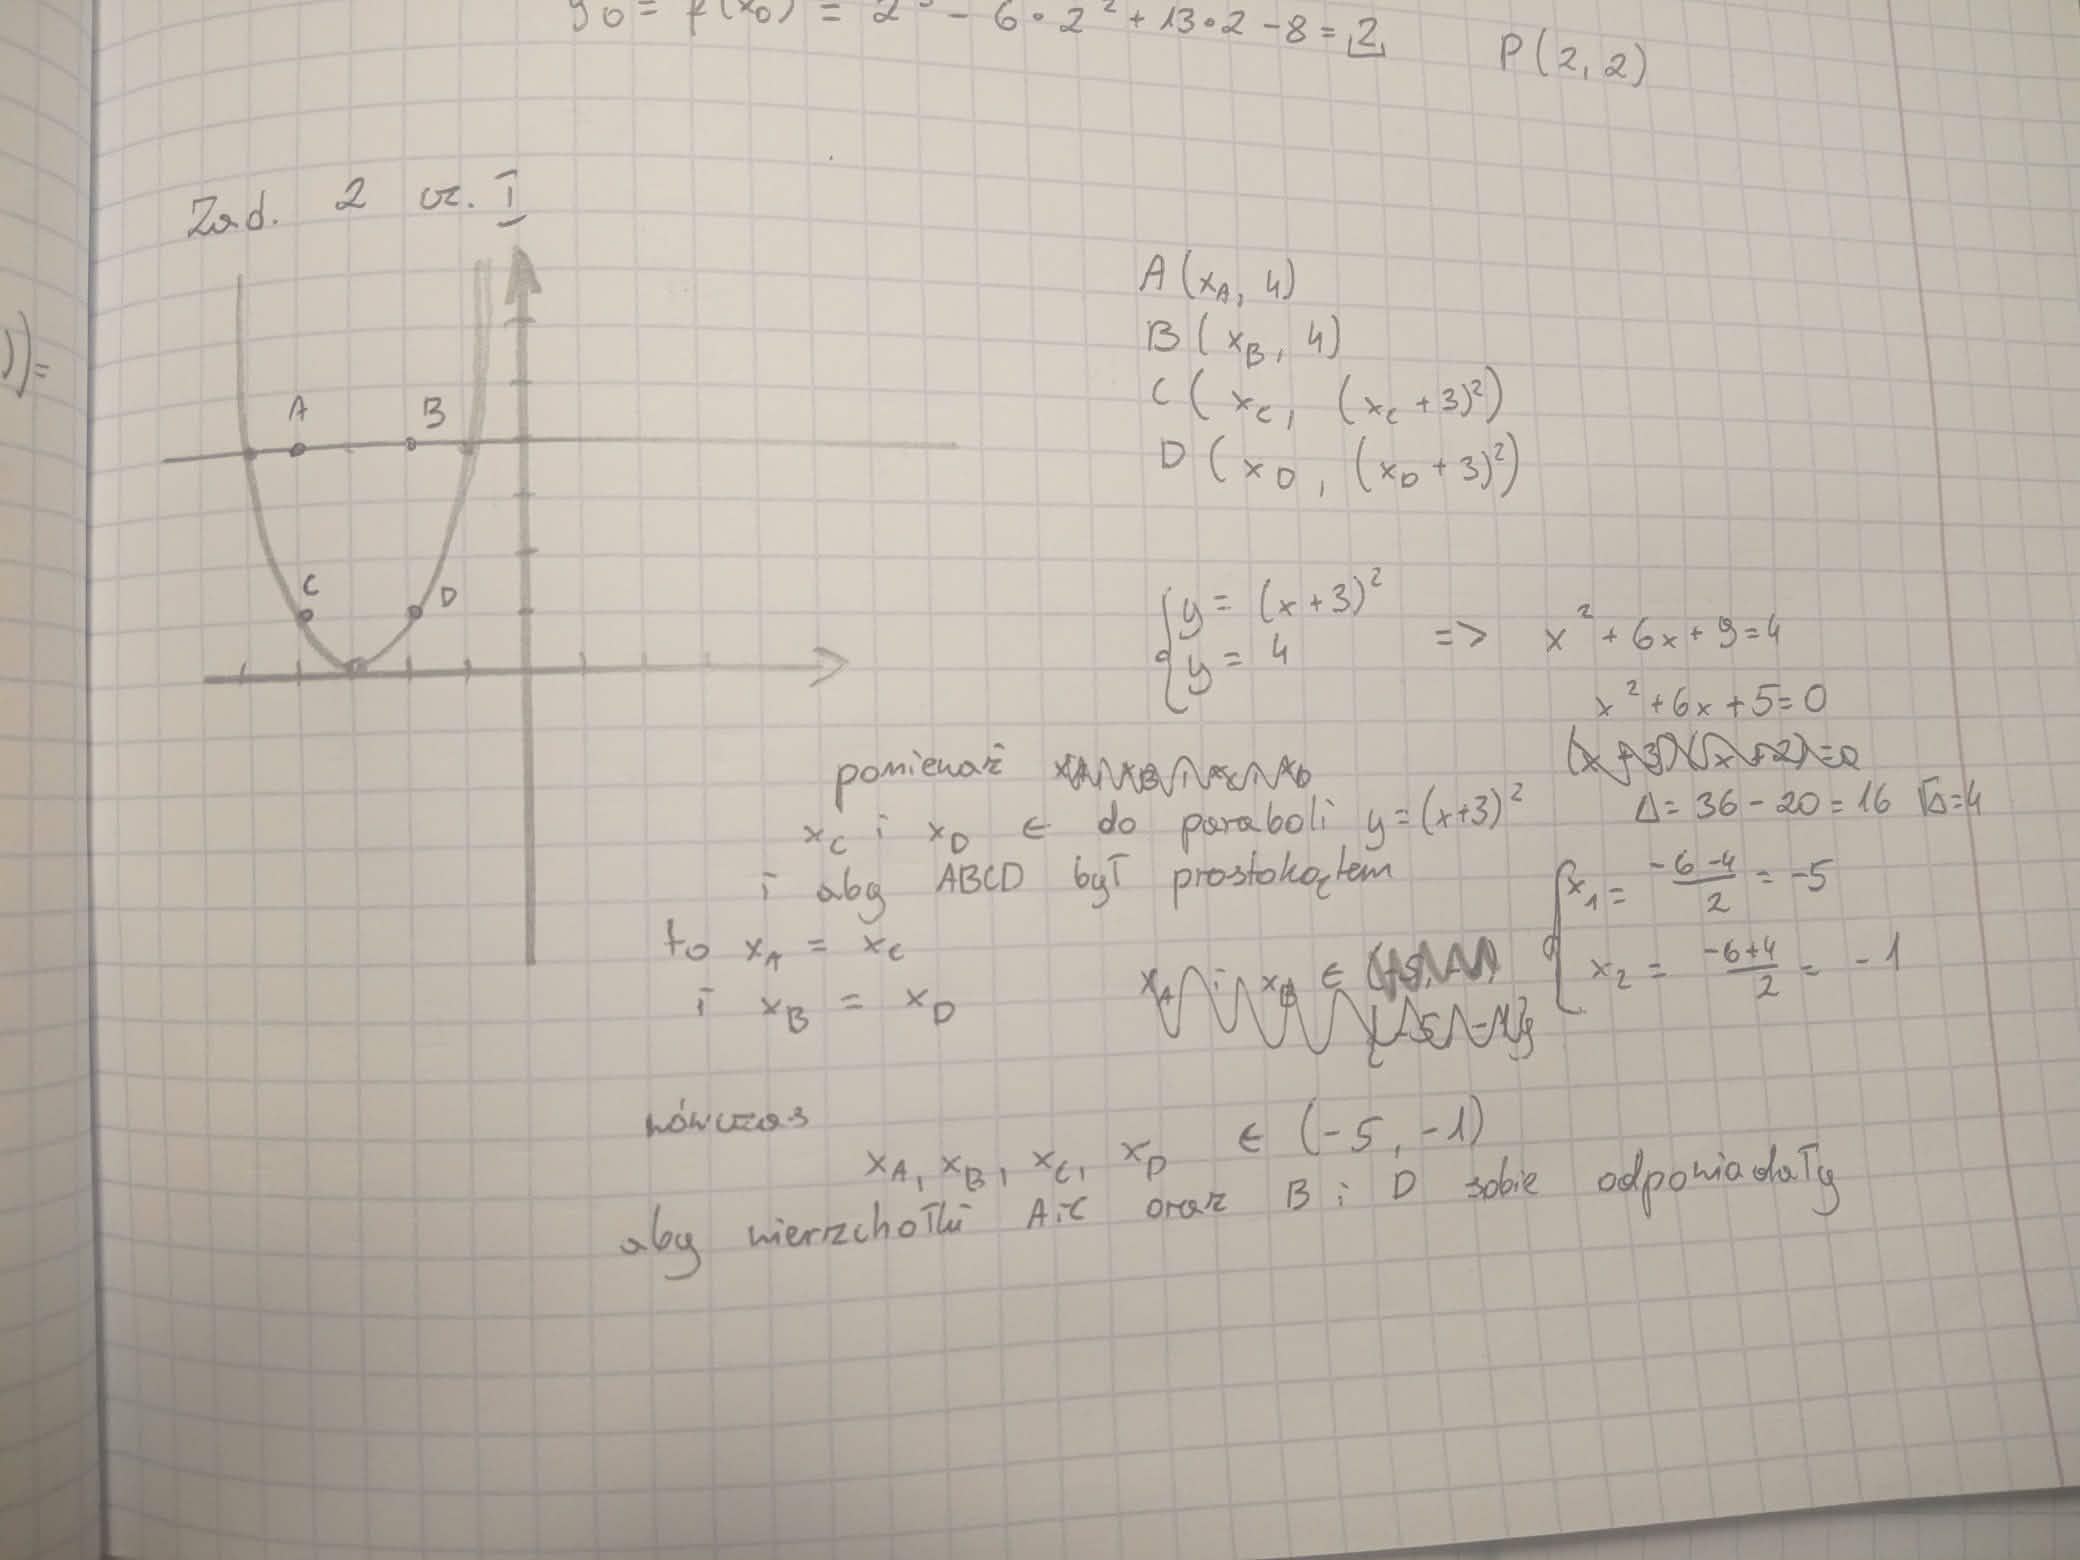 y₀ = f(x₀) = 2³ - 6·2² + 13·2 - 8 = 2 P(2, 2)
))=
Zad. 2 cz. I
A
B
C
D
A (x_A, 4)
B (x_B, 4)
C (x_C, (x_C + 3)²)
D (x_D, (x_D + 3)²)
{ y = (x+3)²
y = 4
=> x² + 6x + 9 = 4
x² + 6x + 5 = 0
(x+3)(x+2)=0
Δ = 36 - 20 = 16 √Δ = 4
x₁ = (-6-4)/2 = -5
x₂ = (-6+4)/2 = -1
ponieważ x_A, x_B, x_C, x_D
x_C i x_D ∈ do paraboli y = (x+3)²
i aby ABCD był prostokątem
to x_A = x_C
i x_B = x_D
x_A i x_B ∈
{-5, -1}
wówczas
x_A, x_B, x_C, x_D ∈ (-5, -1)
aby wierzchołki A i C oraz B i D sobie odpowiadały